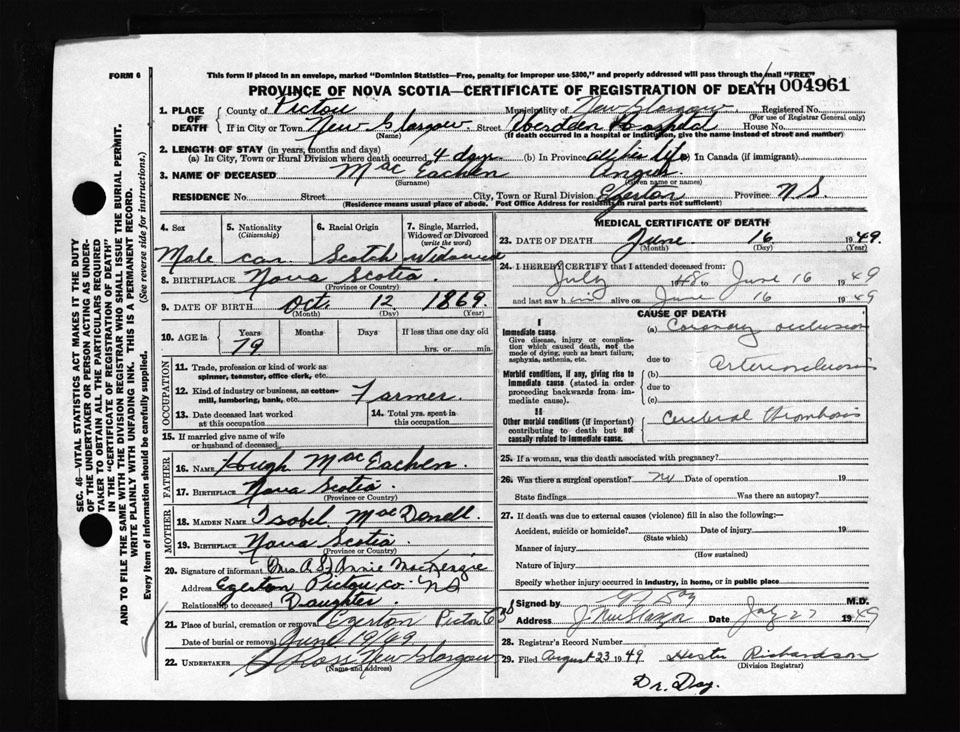 FORM 6
This form if placed in an envelope, marked "Dominion Statistics—Free, penalty for improper use $300," and properly addressed will pass through the mail "FREE"
PROVINCE OF NOVA SCOTIA—CERTIFICATE OF REGISTRATION OF DEATH 004961
1. PLACE OF DEATH
County of Pictou Municipality of New Glasgow Registered No.
(For use of Registrar General only)
If in City or Town New Glasgow Street Aberdeen Hospital House No.
(Name) (If death occurred in a hospital or institution, give the name instead of street and number)
2. LENGTH OF STAY (in years, months and days)
(a) In City, Town or Rural Division where death occurred 4 days (b) In Province all his life (c) In Canada (if immigrant)
3. NAME OF DECEASED MacEachen Angus
(Surname) (Given name or names)
RESIDENCE No. Street City, Town or Rural Division Egerton Province N.S.
(Residence means usual place of abode. Post Office Address for residents in rural parts not sufficient)
4. Sex 5. Nationality (Citizenship) 6. Racial Origin 7. Single, Married, Widowed or Divorced (write the word)
Male Can. Scotch Widowed
8. BIRTHPLACE Nova Scotia
(Province or Country)
9. DATE OF BIRTH Oct. 12 1869.
(Month) (Day) (Year)
10. AGE in Years Months Days If less than one day old
79 hrs. or min.
OCCUPATION
11. Trade, profession or kind of work as spinner, teamster, office clerk, etc.
12. Kind of industry or business, as cotton-mill, lumbering, bank, etc. Farmer.
13. Date deceased last worked at this occupation
14. Total yrs. spent in this occupation
15. If married give name of wife or husband of deceased
FATHER
16. NAME Hugh MacEachen.
17. BIRTHPLACE Nova Scotia.
(Province or Country)
MOTHER
18. MAIDEN NAME Isobel MacDonell.
19. BIRTHPLACE Nova Scotia
(Province or Country)
20. Signature of informant Mrs. Annie MacKenzie
Address Egerton Pictou Co. N S
Relationship to deceased Daughter.
21. Place of burial, cremation or removal Egerton Pictou Co
Date of burial or removal June 19/49
22. UNDERTAKER Ross New Glasgow
(Name and address)
MEDICAL CERTIFICATE OF DEATH
23. DATE OF DEATH June 16 1949.
(Month) (Day) (Year)
24. I HEREBY CERTIFY that I attended deceased from:
July 1948 to June 16 1949
and last saw him alive on June 16 1949
CAUSE OF DEATH
I
Immediate cause
Give disease, injury or complication which caused death, not the mode of dying, such as heart failure, asphyxia, asthenia, etc.
(a) Coronary occlusion
due to
Morbid conditions, if any, giving rise to immediate cause (stated in order proceeding backwards from immediate cause).
(b) Arteriosclerosis
due to
(c)
II
Other morbid conditions (if important) contributing to death but not causally related to immediate cause.
Cerebral thrombosis
25. If a woman, was the death associated with pregnancy?
26. Was there a surgical operation? no Date of operation 19
State findings Was there an autopsy?
27. If death was due to external causes (violence) fill in also the following:—
Accident, suicide or homicide? Date of injury 19
(State which)
Manner of injury
(How sustained)
Nature of injury
Specify whether injury occurred in industry, in home, or in public place
Signed by Day M.D.
Address New Glasgow Date July 27 1949
28. Registrar's Record Number
29. Filed August 23 1949 Hester Richardson
(Division Registrar)
Dr. Day.
SEC. 46—VITAL STATISTICS ACT MAKES IT THE DUTY
OF THE UNDERTAKER OR PERSON ACTING AS UNDER-
TAKER TO OBTAIN ALL THE PARTICULARS REQUIRED
IN THE "CERTIFICATE OF REGISTRATION OF DEATH"
AND TO FILE THE SAME WITH THE DIVISION REGISTRAR WHO SHALL ISSUE THE BURIAL PERMIT.
WRITE PLAINLY WITH UNFADING INK. THIS IS A PERMANENT RECORD.
Every item of information should be carefully supplied. (See reverse side for instructions.)